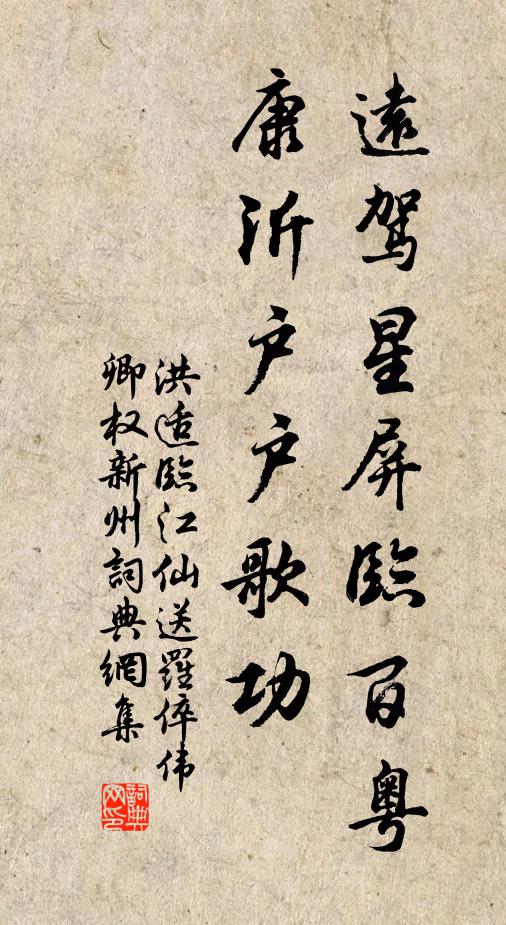 遠駕星屏臨百粤
康沂户户歌功
洪适臨江仙送羅倅伟
卿权新州詞典網集
詞典网印